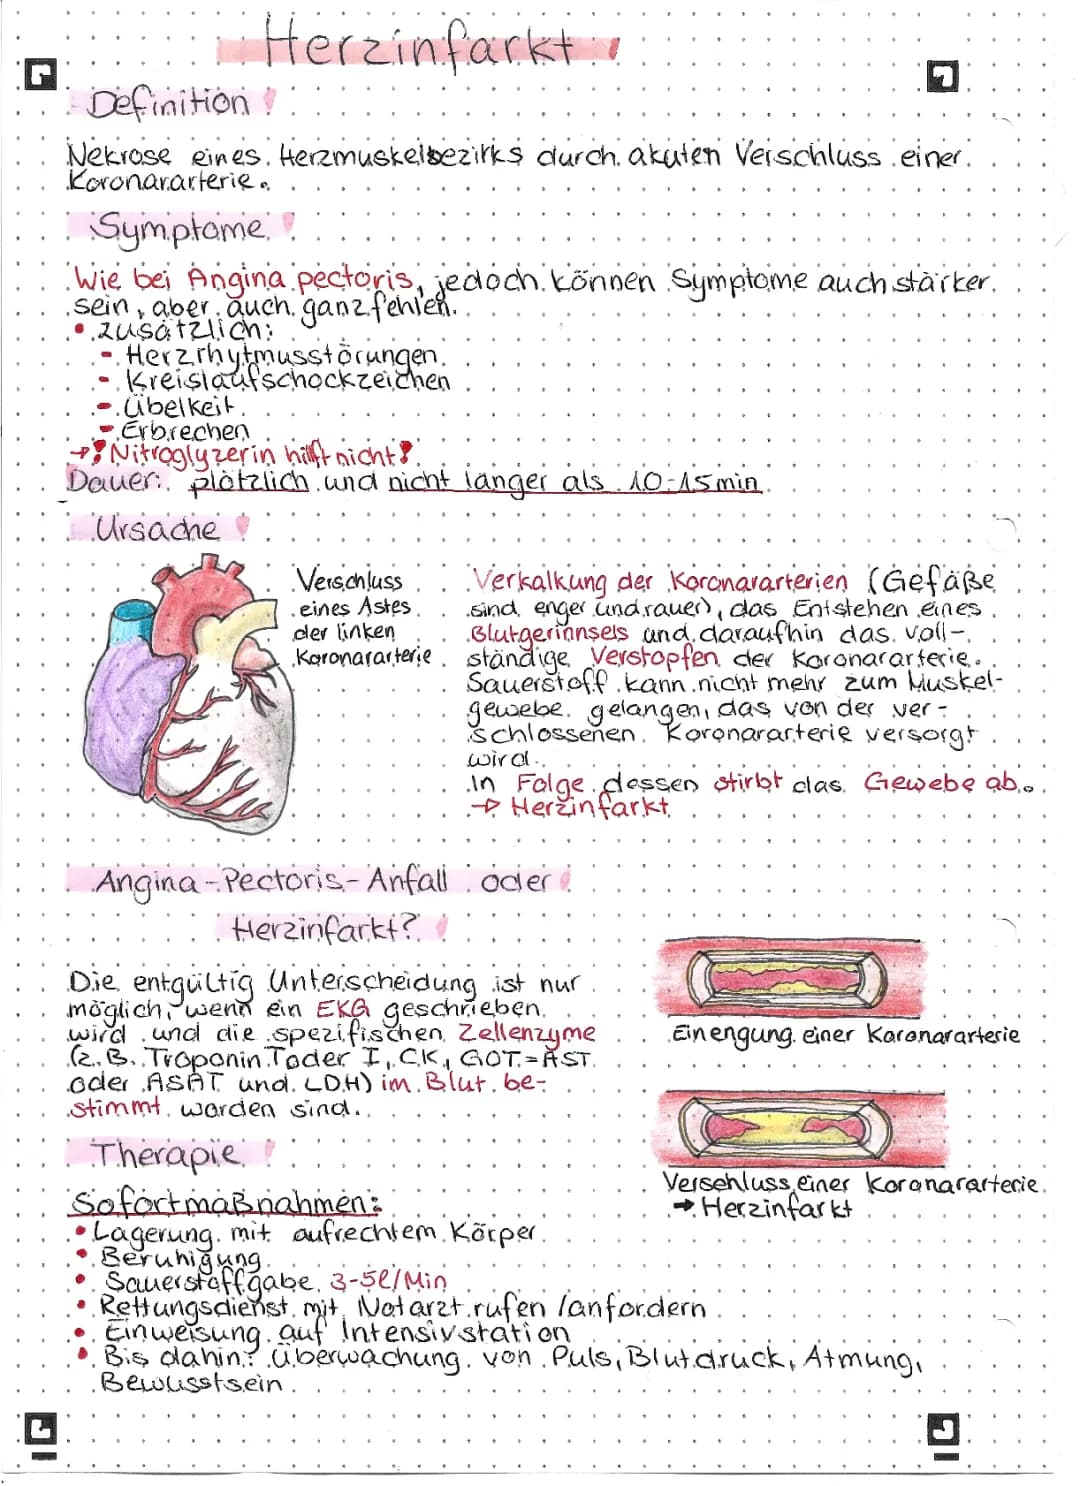 Herzinfarkt
Definition
Nekrose eines Herzmuskelbezirks durch akuten Verschluss einer
Koronararterie.
Symptome
Wie bei Angina pectoris, jedoch können Symptome auch stärker
sein, aber auch ganz fehlen.
• zusätzlich:
- Herzrhytmusstörungen
- Kreislaufschockzeichen
- Übelkeit
- Erbrechen
→ ! Nitroglyzerin hilft nicht!
Dauer: plötzlich und nicht länger als 10-15min
Ursache
Verschluss
eines Astes
der linken
Koronararterie
Verkalkung der Koronararterien (Gefäße
sind enger und rauer), das Entstehen eines
Blutgerinnsels und daraufhin das voll-
ständige Verstopfen der Koronararterie.
Sauerstoff kann nicht mehr zum Muskel-
gewebe gelangen, das von der ver-
schlossenen Koronararterie versorgt
wird.
In Folge dessen stirbt das Gewebe ab.
→ Herzinfarkt
Angina-Pectoris-Anfall oder
Herzinfarkt?
Die entgültig Unterscheidung ist nur
möglich, wenn ein EKG geschrieben
wird und die spezifischen Zellenzyme
(z.B. Troponin T oder I, CK, GOT = AST
oder ASAT und LDH) im Blut be-
stimmt worden sind.
Einengung einer Koronararterie
Verschluss einer Koronararterie
→ Herzinfarkt
Therapie
Sofortmaßnahmen:
• Lagerung mit aufrechtem Körper
• Beruhigung
• Sauerstoffgabe 3-5l/Min
• Rettungsdienst mit Notarzt rufen /anfordern
• Einweisung auf Intensivstation
• Bis dahin: Überwachung von Puls, Blutdruck, Atmung,
Bewusstsein